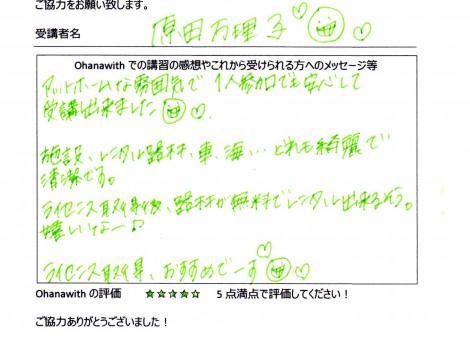 ご協力をお願い致します。
受講者名 原田万理子
Ohanawith での講習の感想やこれから受けられる方へのメッセージ等
アットホームな雰囲気で 1人参加でも安心して
受講出来ました
施設、レンタル器材、車、海… どれも綺麗で
清潔です。
ライセンス取得後、器材が無料でレンタル出来るそう。
嬉しいなー♪
ライセンス取得、おすすめでーす
Ohanawith の評価 ★★★★★ 5 点満点で評価してください！
ご協力ありがとうございました！